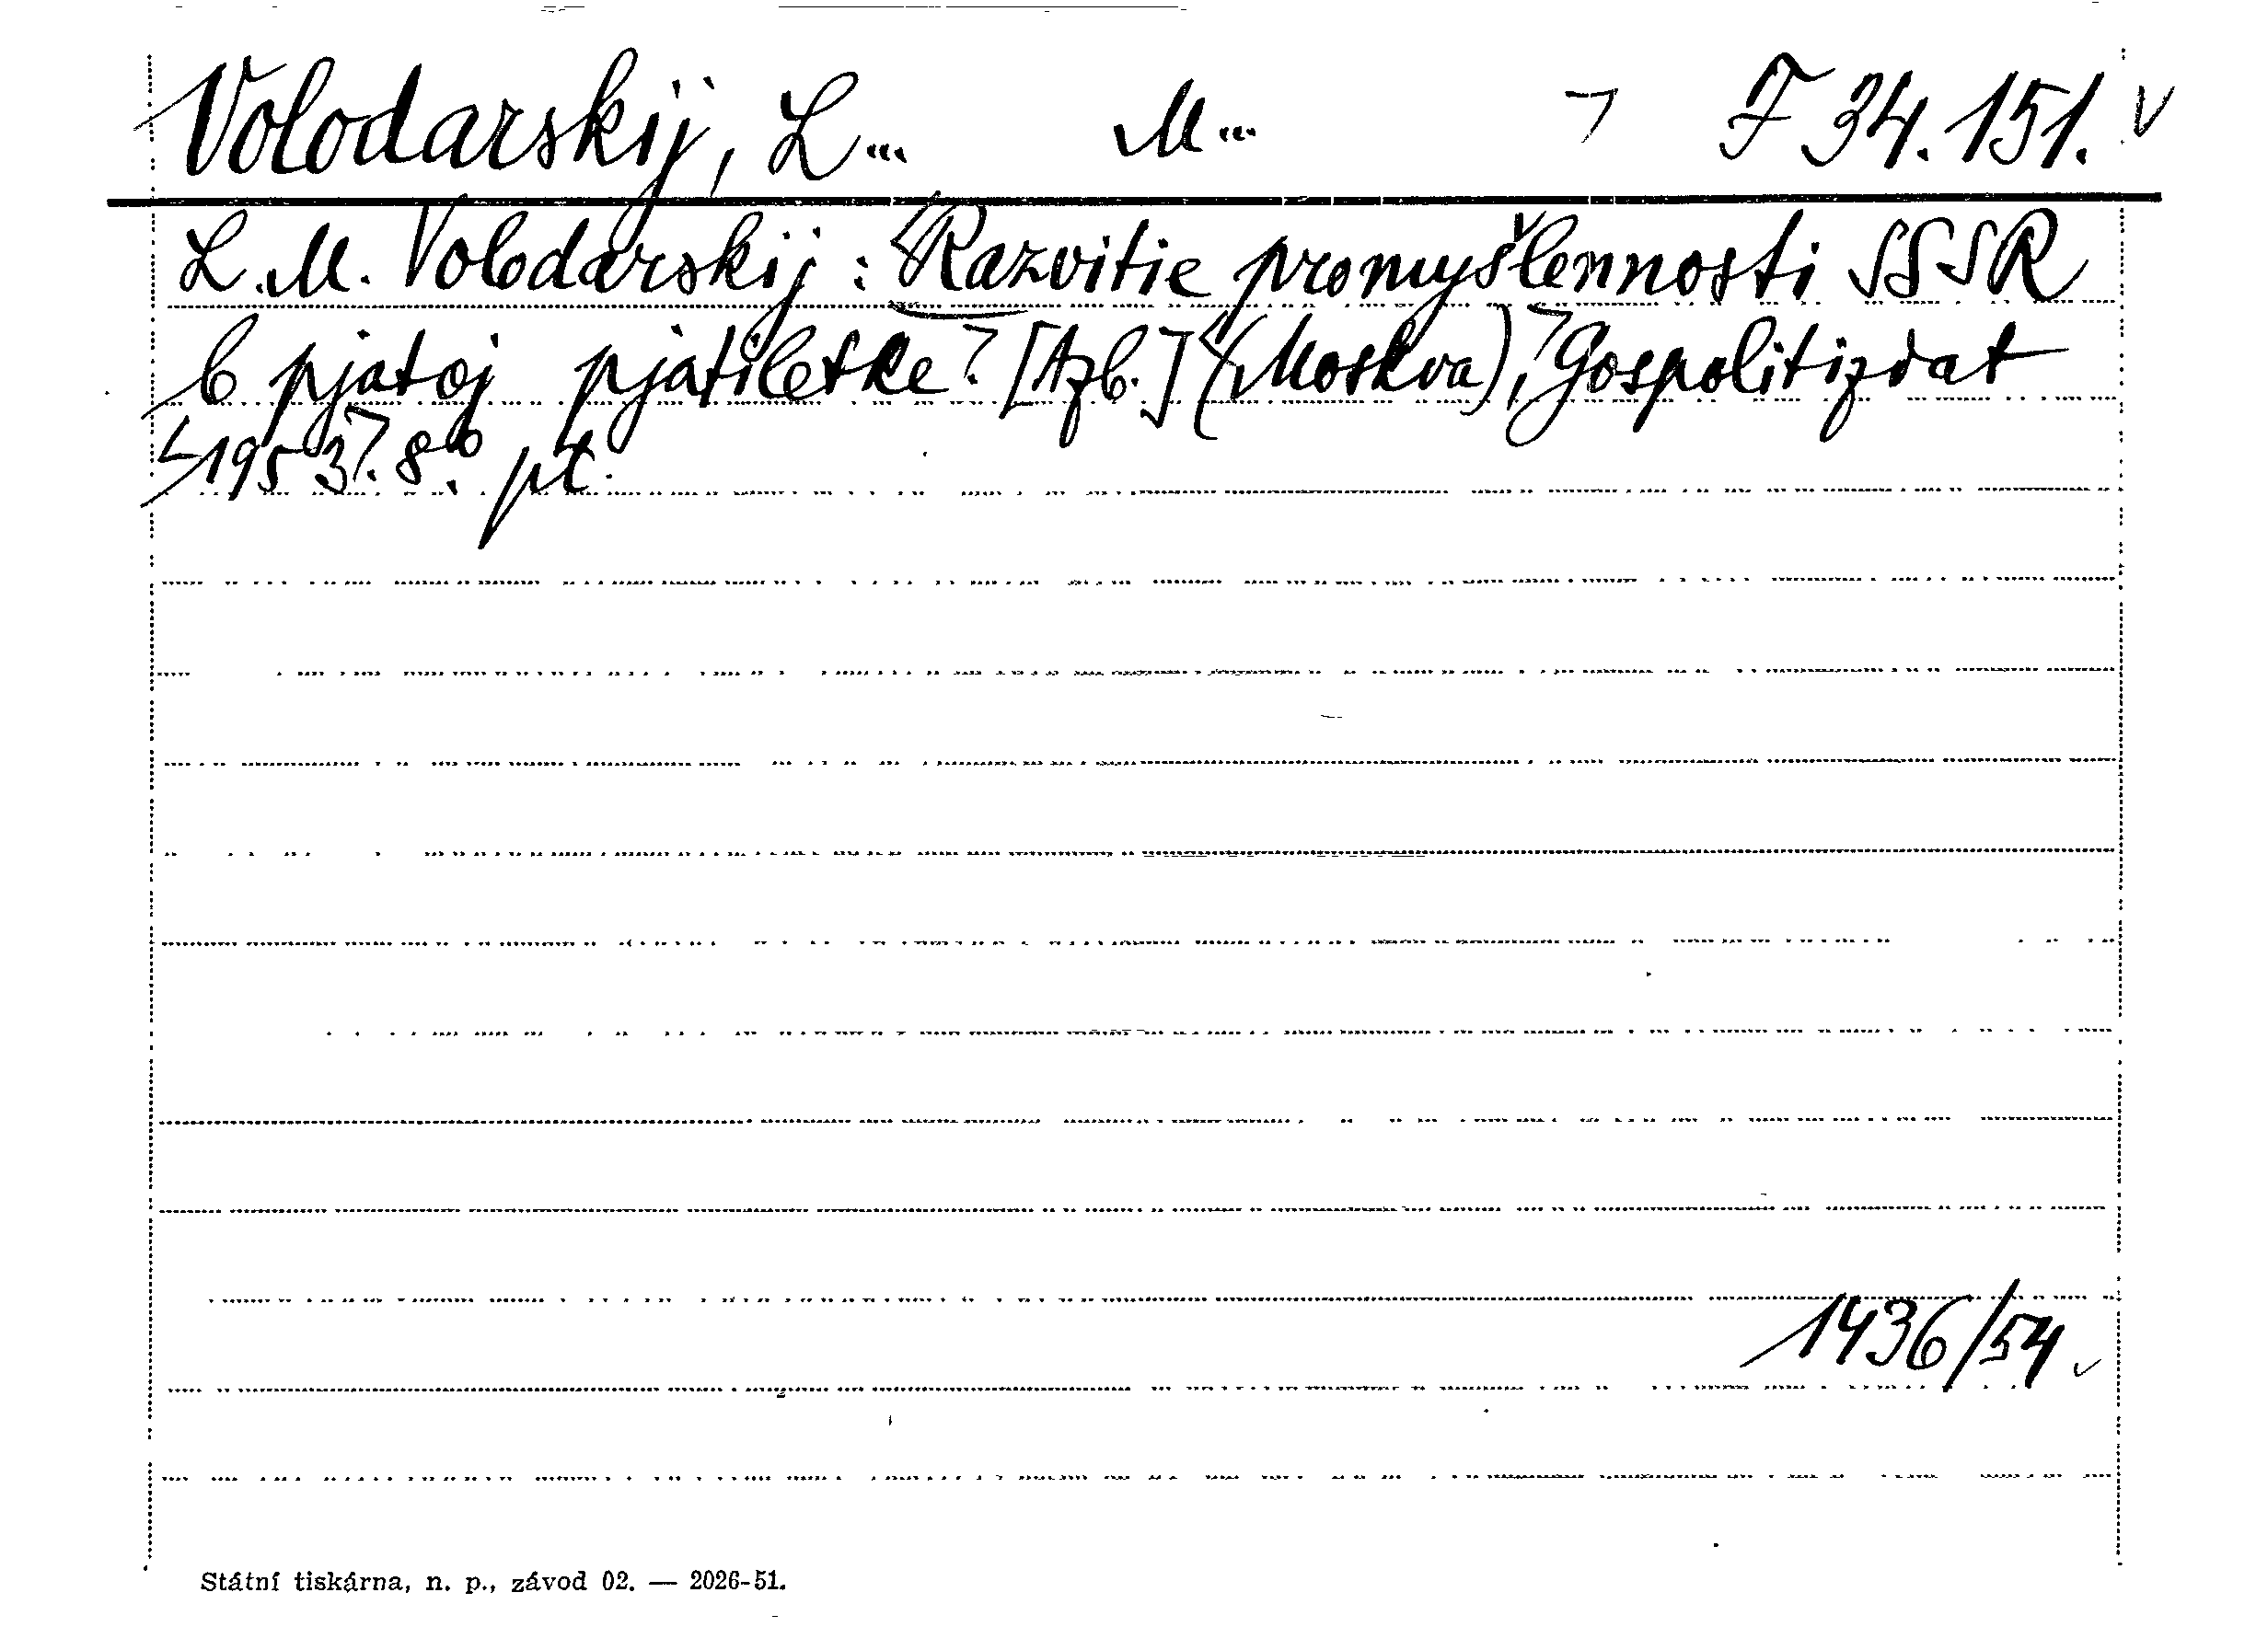 Volodarskij, L... M... F 34.151.
L. M. Volodarskij: Razvitie promyšlennosti SSSR
v pjatoj pjatiletke. [Azb.] (Moskva), Gospolitizdat
1953. 8°. př.
1436/54
Státní tiskárna, n. p., závod 02. — 2026-51.